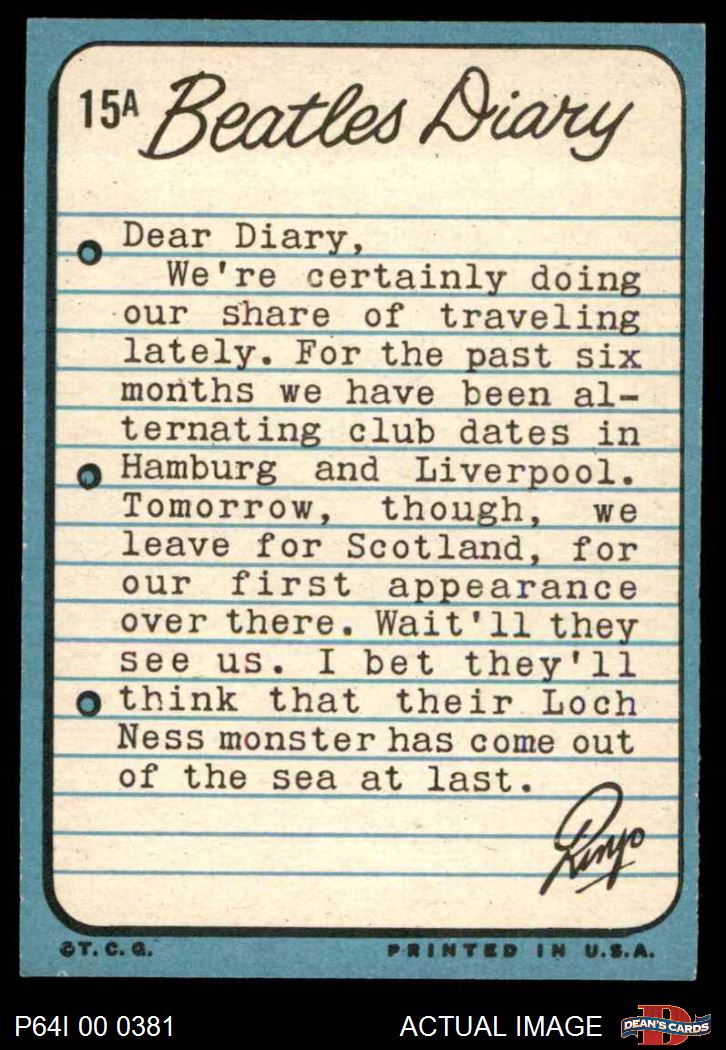 15A Beatles Diary
Dear Diary,
We're certainly doing
our share of traveling
lately. For the past six
months we have been al-
ternating club dates in
Hamburg and Liverpool.
Tomorrow, though, we
leave for Scotland, for
our first appearance
over there. Wait'll they
see us. I bet they'll
think that their Loch
Ness monster has come out
of the sea at last.
Ringo
©T.C.G. PRINTED IN U.S.A.
P64I 00 0381 ACTUAL IMAGE D DEAN'S CARDS